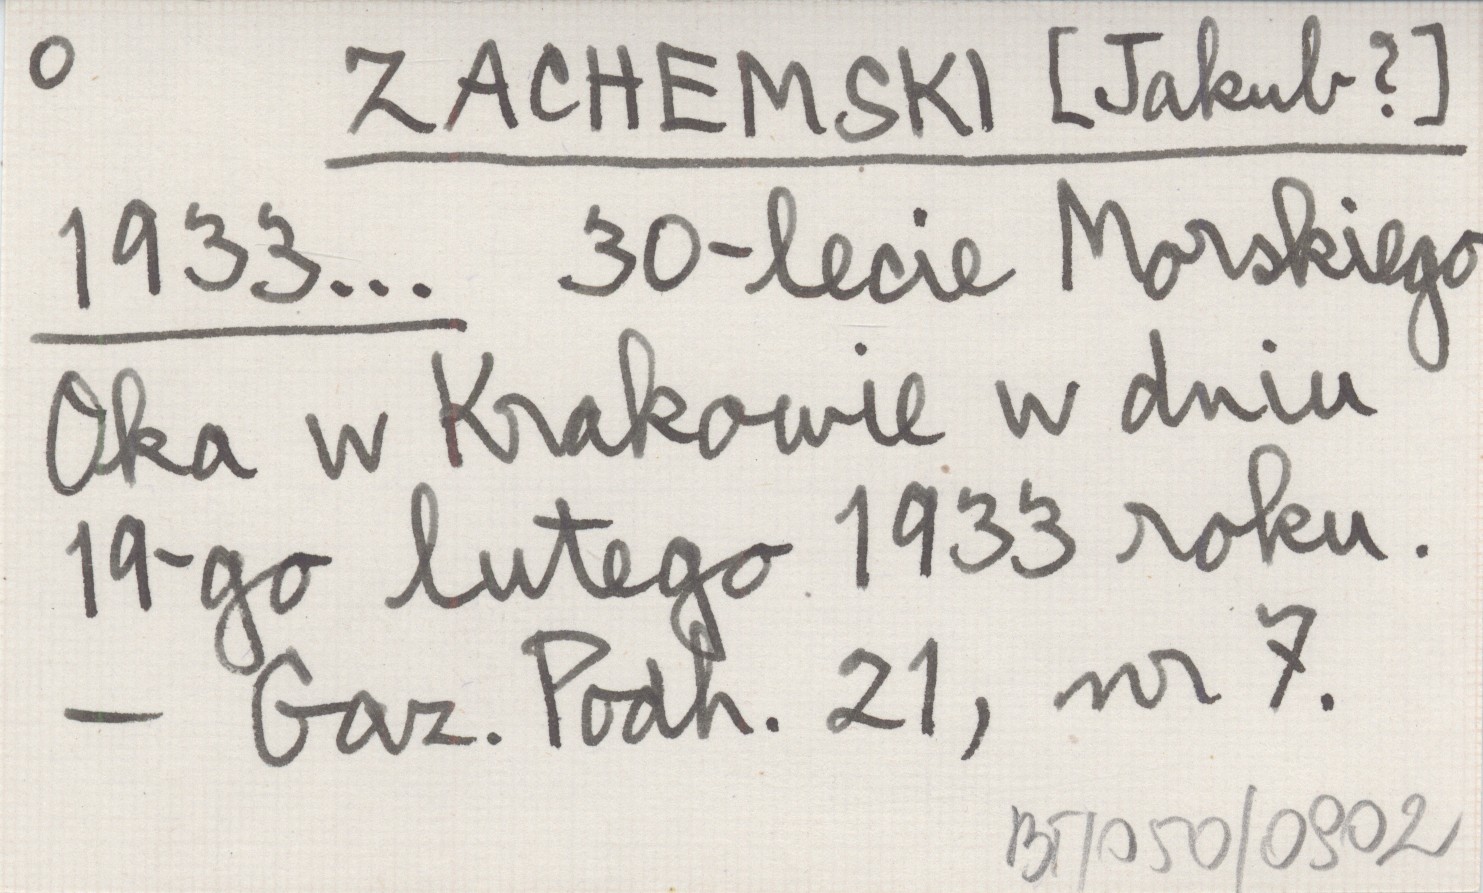 o ZACHEMSKI [Jakub?]
1933... 30-lecie Morskiego
Oka w Krakowie w dniu
19-go lutego 1933 roku.
— Gaz. Podh. 21, nr 7.
BT/050/0902